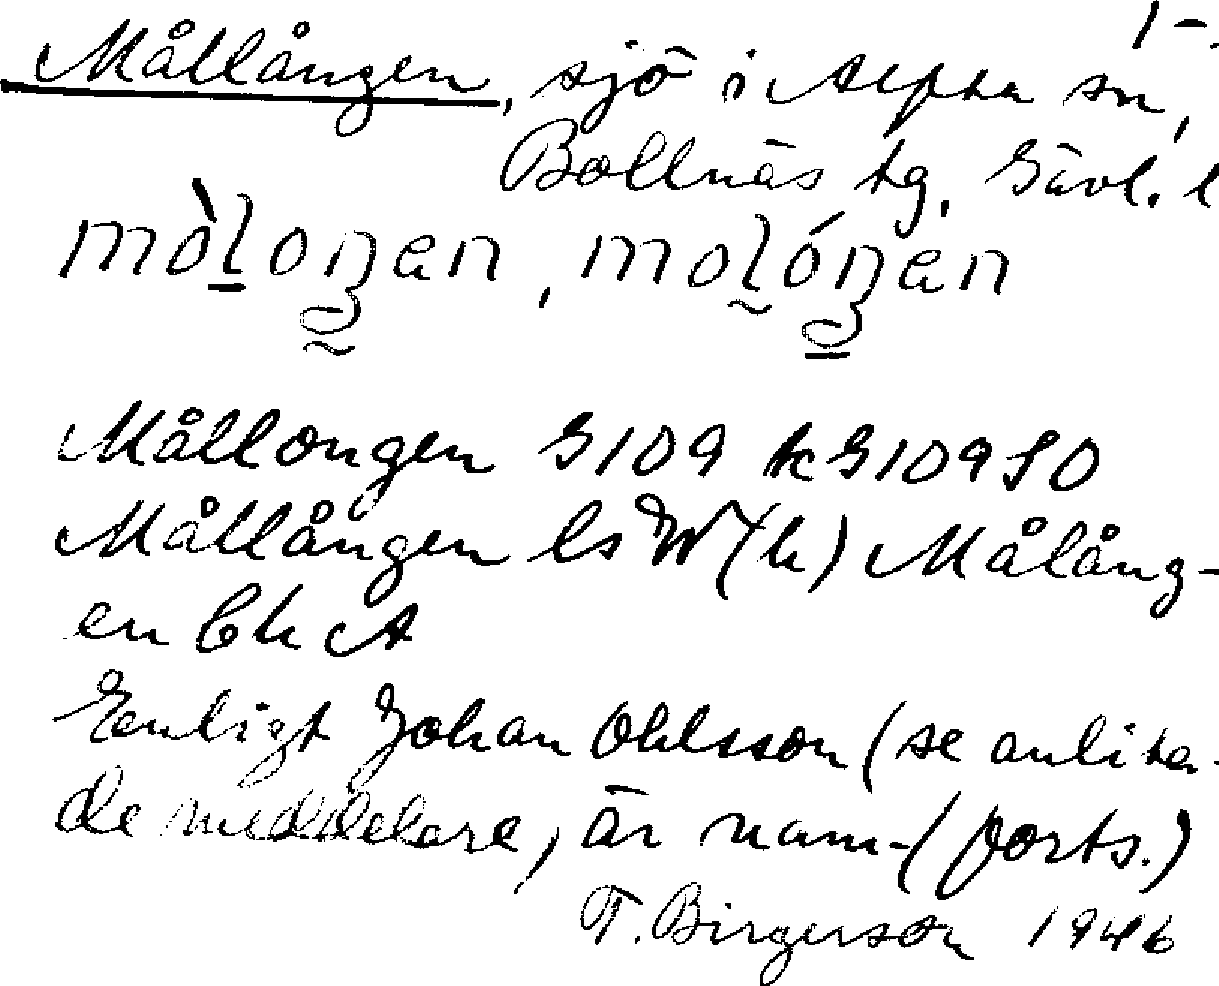 1-.
Mållången, sjö i Alfta sn,
Bollnäs tg, Gävl. l
Mållongen G109 kG109SO
Mållången ls W (k) Målång-
en Ch A
Enligt Johan Ohlsson (se anlita-
de meddelare) är nam- (forts.)
T. Birgerson 1946